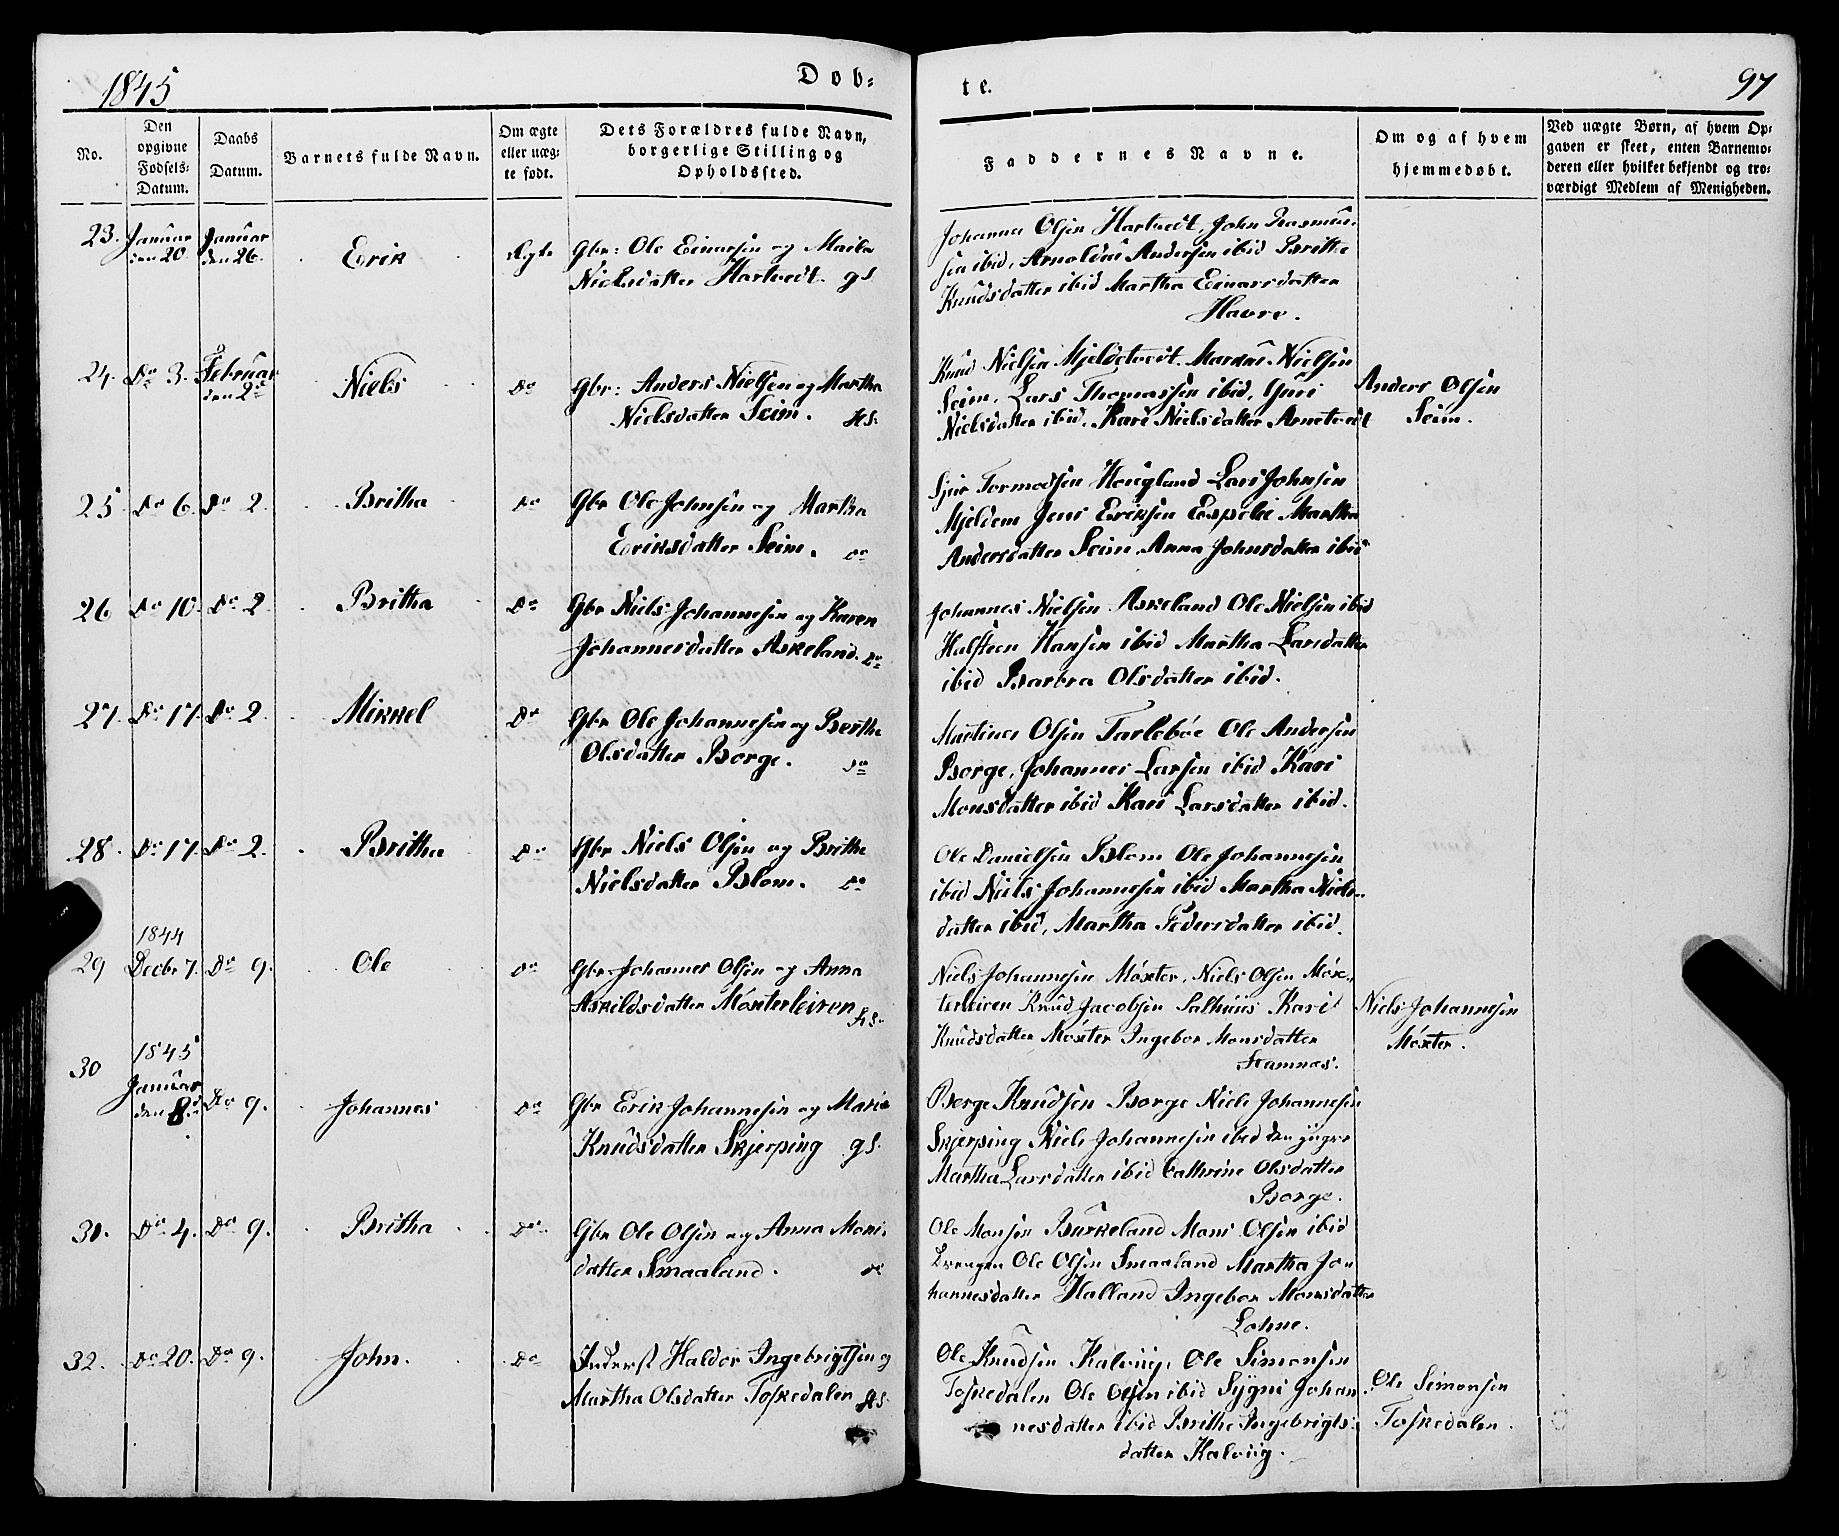 1845
Døb-
te.
97
No.
Den opgivne Fødsels-Datum.
Daabs Datum.
Barnets fulde Navn.
Om ægte eller uægte født.
Dets Forældres fulde Navn, borgerlige Stilling og Opholdssted.
Faddernes Navne.
Om og af hvem hjemmedøbt.
Ved uægte Børn, af hvem Opgaven er skeet, enten Barnemoderen eller hvilket bekjendt og troværdigt Medlem af Menigheden.
23. Januar den 20. Januar den 26. Erik Ægte
Gbr: Ole Einarsen og Mailen
Nielsdatter Hartvedt. gS
Johannes Olsen Hartvedt, John Rasmus-
sen ibid, Arnoldus Andersen ibid Brithe
Knudsdatter ibid Martha Einarsdatter
Havre.
24. Do 3. Februar den 2d Niels Do
Gbr: Anders Nielsen og Martha
Nielsdatter Seim. HS.
Knud Nielsen Mjeldetvedt. Markus Nielsen
Seim, Lars Thomassen ibid, Guri
Nielsdatter ibid, Kari Nielsdatter Arnetvedt
Anders Olsen
Seim.
25. Do 6. Do 2. Britha Do
Gbr Ole Johnsen og Martha
Eriksdatter Seim. Do
Sjur Tormodsen Hougland Lars Johnsen
Mjeldem Jens Eriksen Espelie Martha
Andersdatter Seim Anna Johnsdatter ibid
26 Do 10. Do 2 Britha Do
Gbr Niels Johannesen og Karen
Johannesdatter Askeland. Do
Johannes Nielsen Askeland Ole Nielsen ibid
Halsteen Hansen ibid Martha Larsdatter
ibid Barbra Olsdatter ibid.
27. Do 17. Do 2. Mikkel Do
Gbr Ole Johannesen og Bertha
Olsdatter Borge. Do
Martinus Olsen Tarlebøe Ole Andersen
Borge, Johannes Larsen ibid Kari
Monsdatter ibid Kari Larsdatter ibid.
28. Do 17. Do 2. Britha Do
Gbr Niels Olsen og Brithe
Nielsdatter Blom. Do
Ole Danielsen Blom Ole Johannesen
ibid Niels Johannesen ibid Martha Niels-
datter ibid, Martha Pedersdatter ibid.
1844
29 Decbr 7. Do 9. Ole Do
Gbr Johannes Olsen og Anna
Askildsdatter Møxterleiren HS.
Niels Johannesen Møxter, Niels Olsen Møx-
terleiren Knud Jacobsen Salhuus Kari
Knudsdatter Møxter Ingebor Monsdatter
Hamnas.
Niels Johannesen
Møxter.
1845
30 Januar den 8d. Do 9. Johannes Do
Gbr Erik Johannesen og Marie
Knudsdatter Skjerping gS.
Berge Knudsen Borge Niels Johannesen
Skjerping Niels Johannesen ibid den yngre
Martha Larsdatter ibid Cathrine Olsdatter
Borge.
31. Do 4. Do 9. Britha Do
Gbr Ole Olsen og Anna Mons-
datter Smaaland. Do
Ole Monsen Burkeland Mons Olsen ibid
Drengen Ole Olsen Smaaland Martha Jo-
hannesdatter Halland Ingebor Monsdatter
Lohne.
32. Do 20. Do 9. John. Do
Inderst Haldor Ingebrigtsen og
Martha Olsdatter Toskedalen HS.
Ole Knudsen Kalvuig, Ole Simonsen
Toskedalen Ole Olsen ibid Sygni Johan-
nesdatter ibid Brithe Ingebrigts-
datter Kalvuig.
Ole Simonsen
Toskedalen.